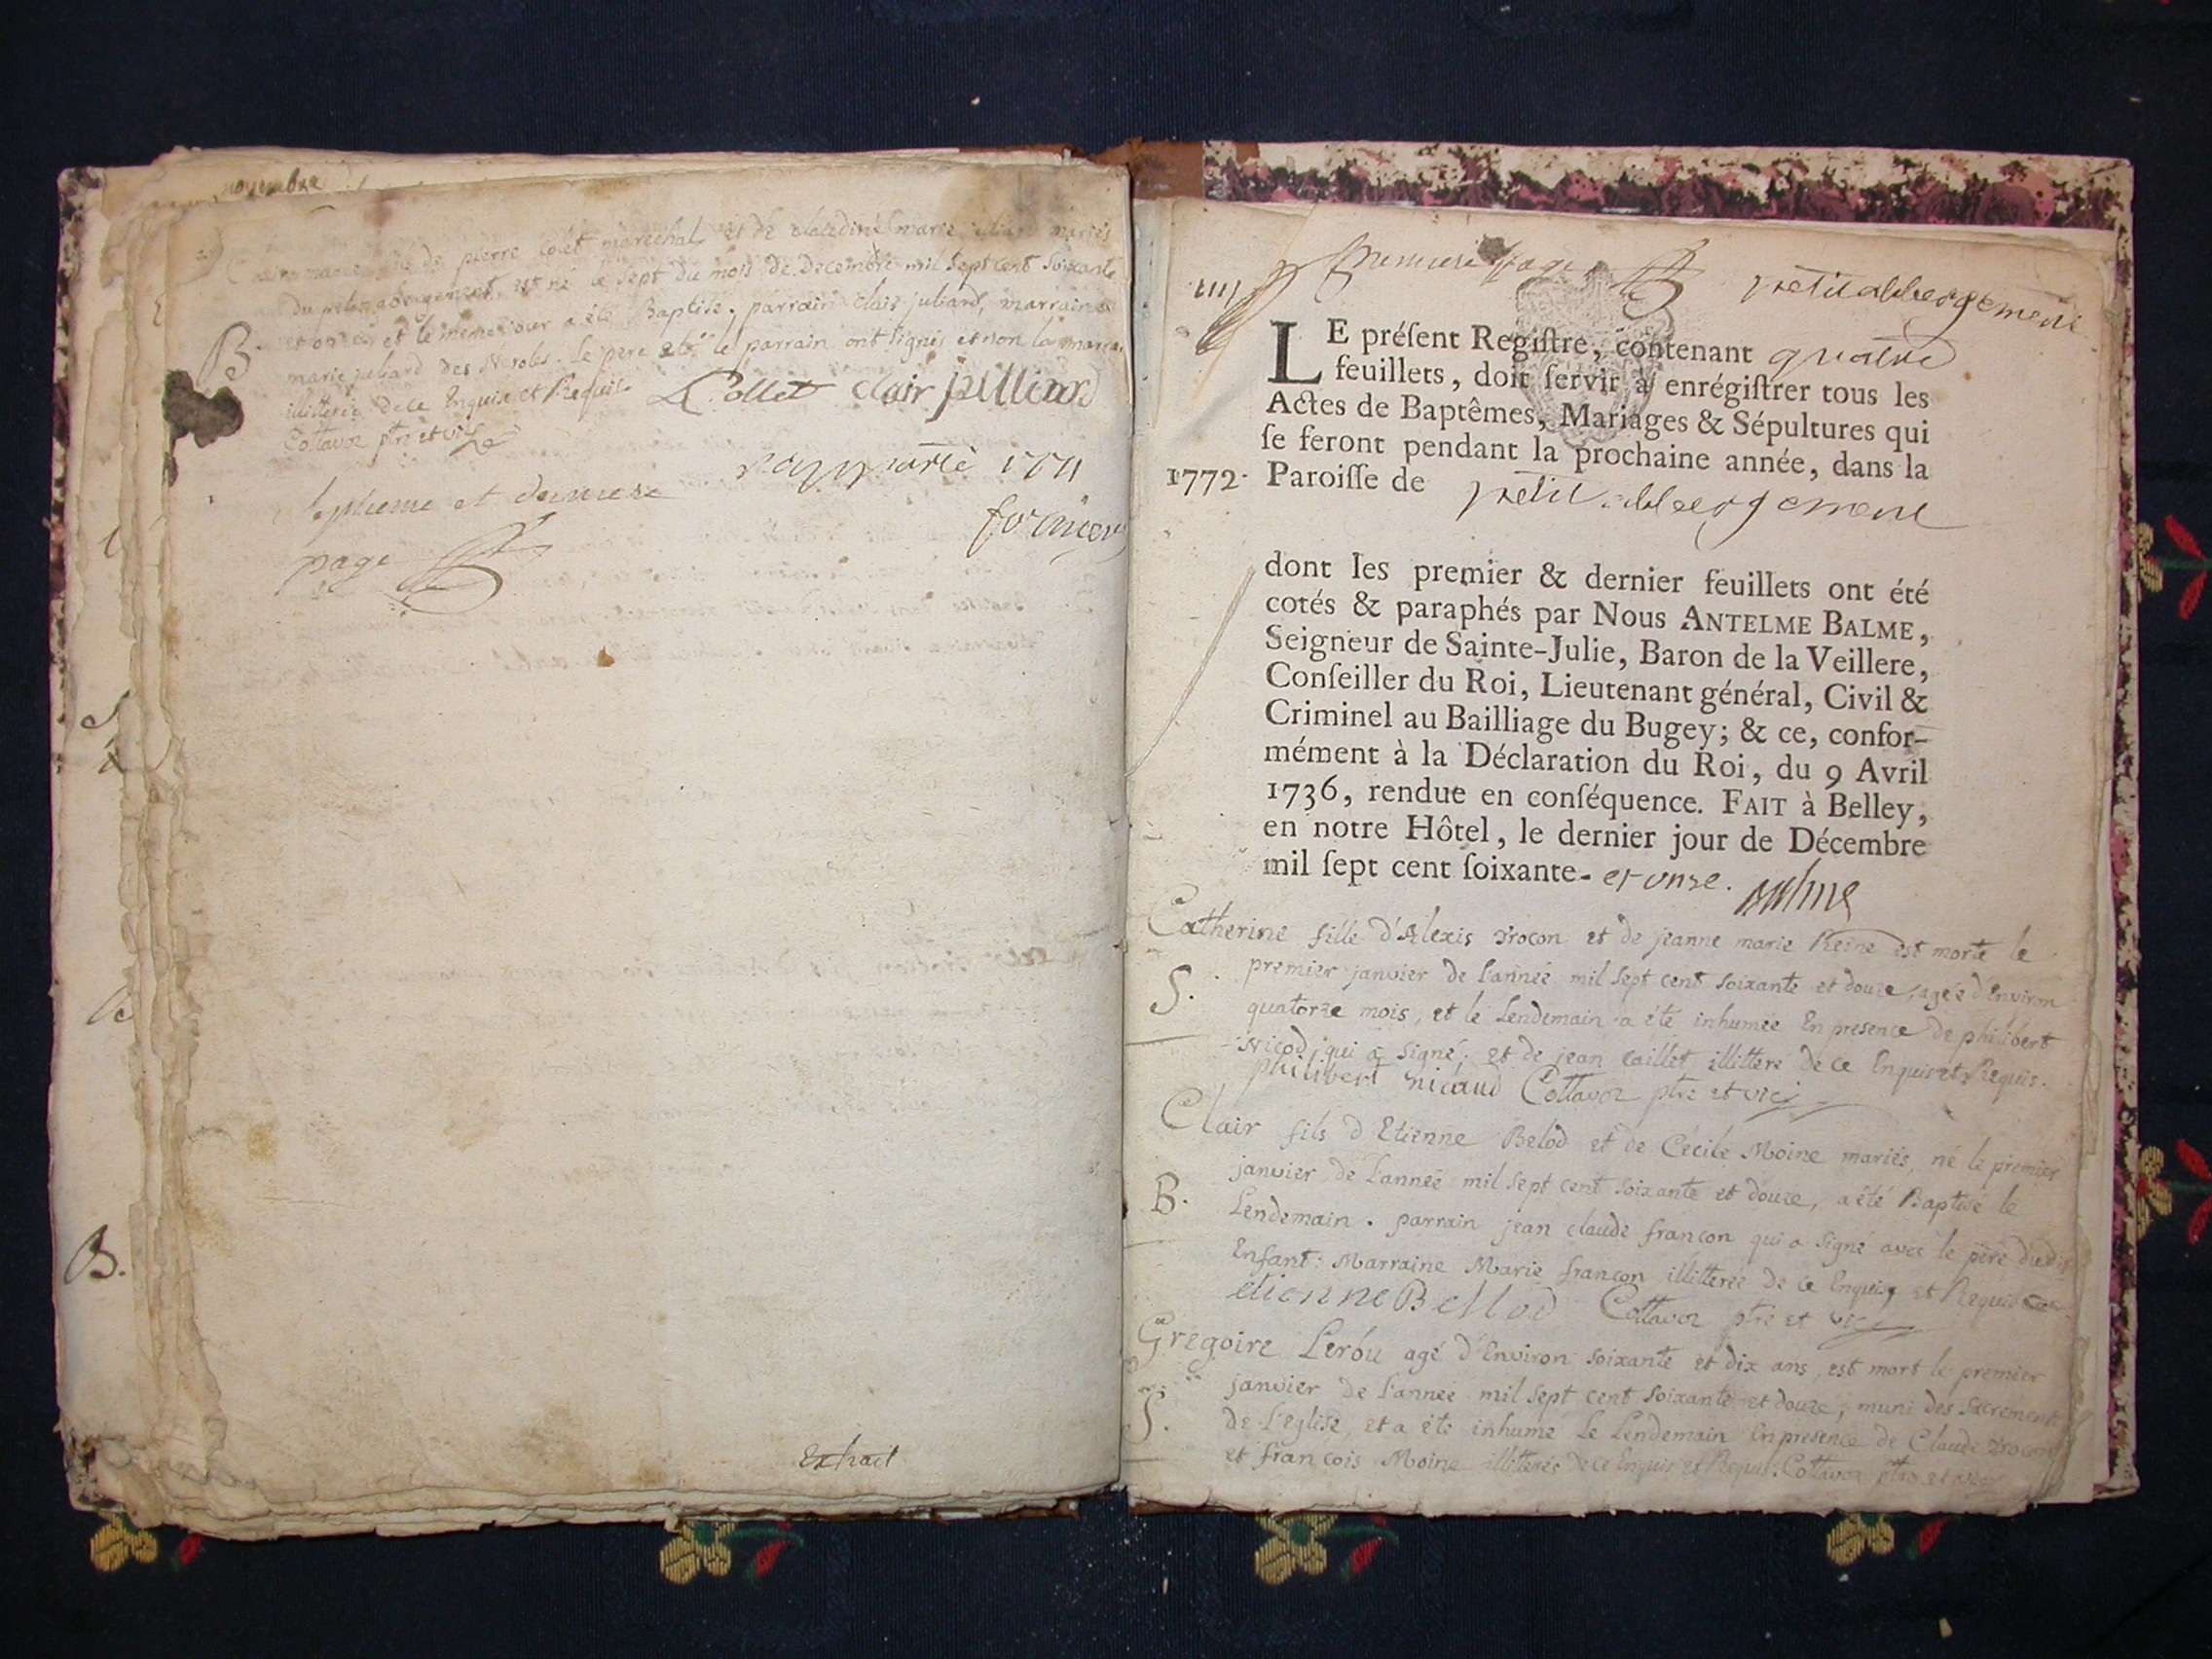 novembre
de pierre Colet marechal et de claudine marie juliard mariés
du petit abergement, est né le sept du mois de decembre mil sept cent soixante
et onze, et le meme jour a été Baptisé; parrain clair juliard, marraine
B.
marie juliard des Nerolés. Le pere et le parrain ont signés et non la marraine
illitterée de ce Enquise et Requise
L Collet clair julliard
Cottavoz ptre et vic
rapporté 1771
septieme et derniere
page
B.
Extrait
premiere page
petit abbergement
LE préſent Regiſtre, contenant quatre
feuillets, doit ſervir à enrégiſtrer tous les
Actes de Baptêmes, Mariages & Sépultures qui
ſe feront pendant la prochaine année, dans la
1772. Paroiſſe de petit abbergement
dont les premier & dernier feuillets ont été
cotés & paraphés par Nous ANTELME BALME,
Seigneur de Sainte-Julie, Baron de la Veillere,
Conſeiller du Roi, Lieutenant général, Civil &
Criminel au Bailliage du Bugey; & ce, confor-
mément à la Déclaration du Roi, du 9 Avril
1736, rendue en conſéquence. FAIT à Belley,
en notre Hôtel, le dernier jour de Décembre
mil ſept cent ſoixante-et onze. Balme
Catherine fille d'Alexis trocon et de jeanne marie Reine est morte le
premier janvier de l'année mil sept cent soixante et douze, agée d'Environ
S.
quatorze mois, et le Lendemain a été inhumée En presence de philibert
Nicod, qui a signé, et de jean caillet illittere de ce Enquis et Requis.
philibert nicaud Cottavoz ptre et vic
Clair fils d'Etienne Belod et de Cécile Moine mariés, né le premier
janvier de l'année mil sept cent soixante et douze, a été Baptisé le
B.
Lendemain. parrain jean claude françon qui a signé avec le père dudit
Enfant: Marraine Marie françon illitterée de ce Enquise et Requise
etienne Bellod Cottavoz ptre et vic
Gregoire Lerou agé d'Environ soixante et dix ans, est mort le premier
janvier de l'année mil sept cent soixante et douze, muni des Sacrement
S.
de l'Eglise, et a été inhumé le Lendemain En presence de Claude trocon
et françois Moine illitterés de ce Enquis et Requis. Cottavoz ptre et vic